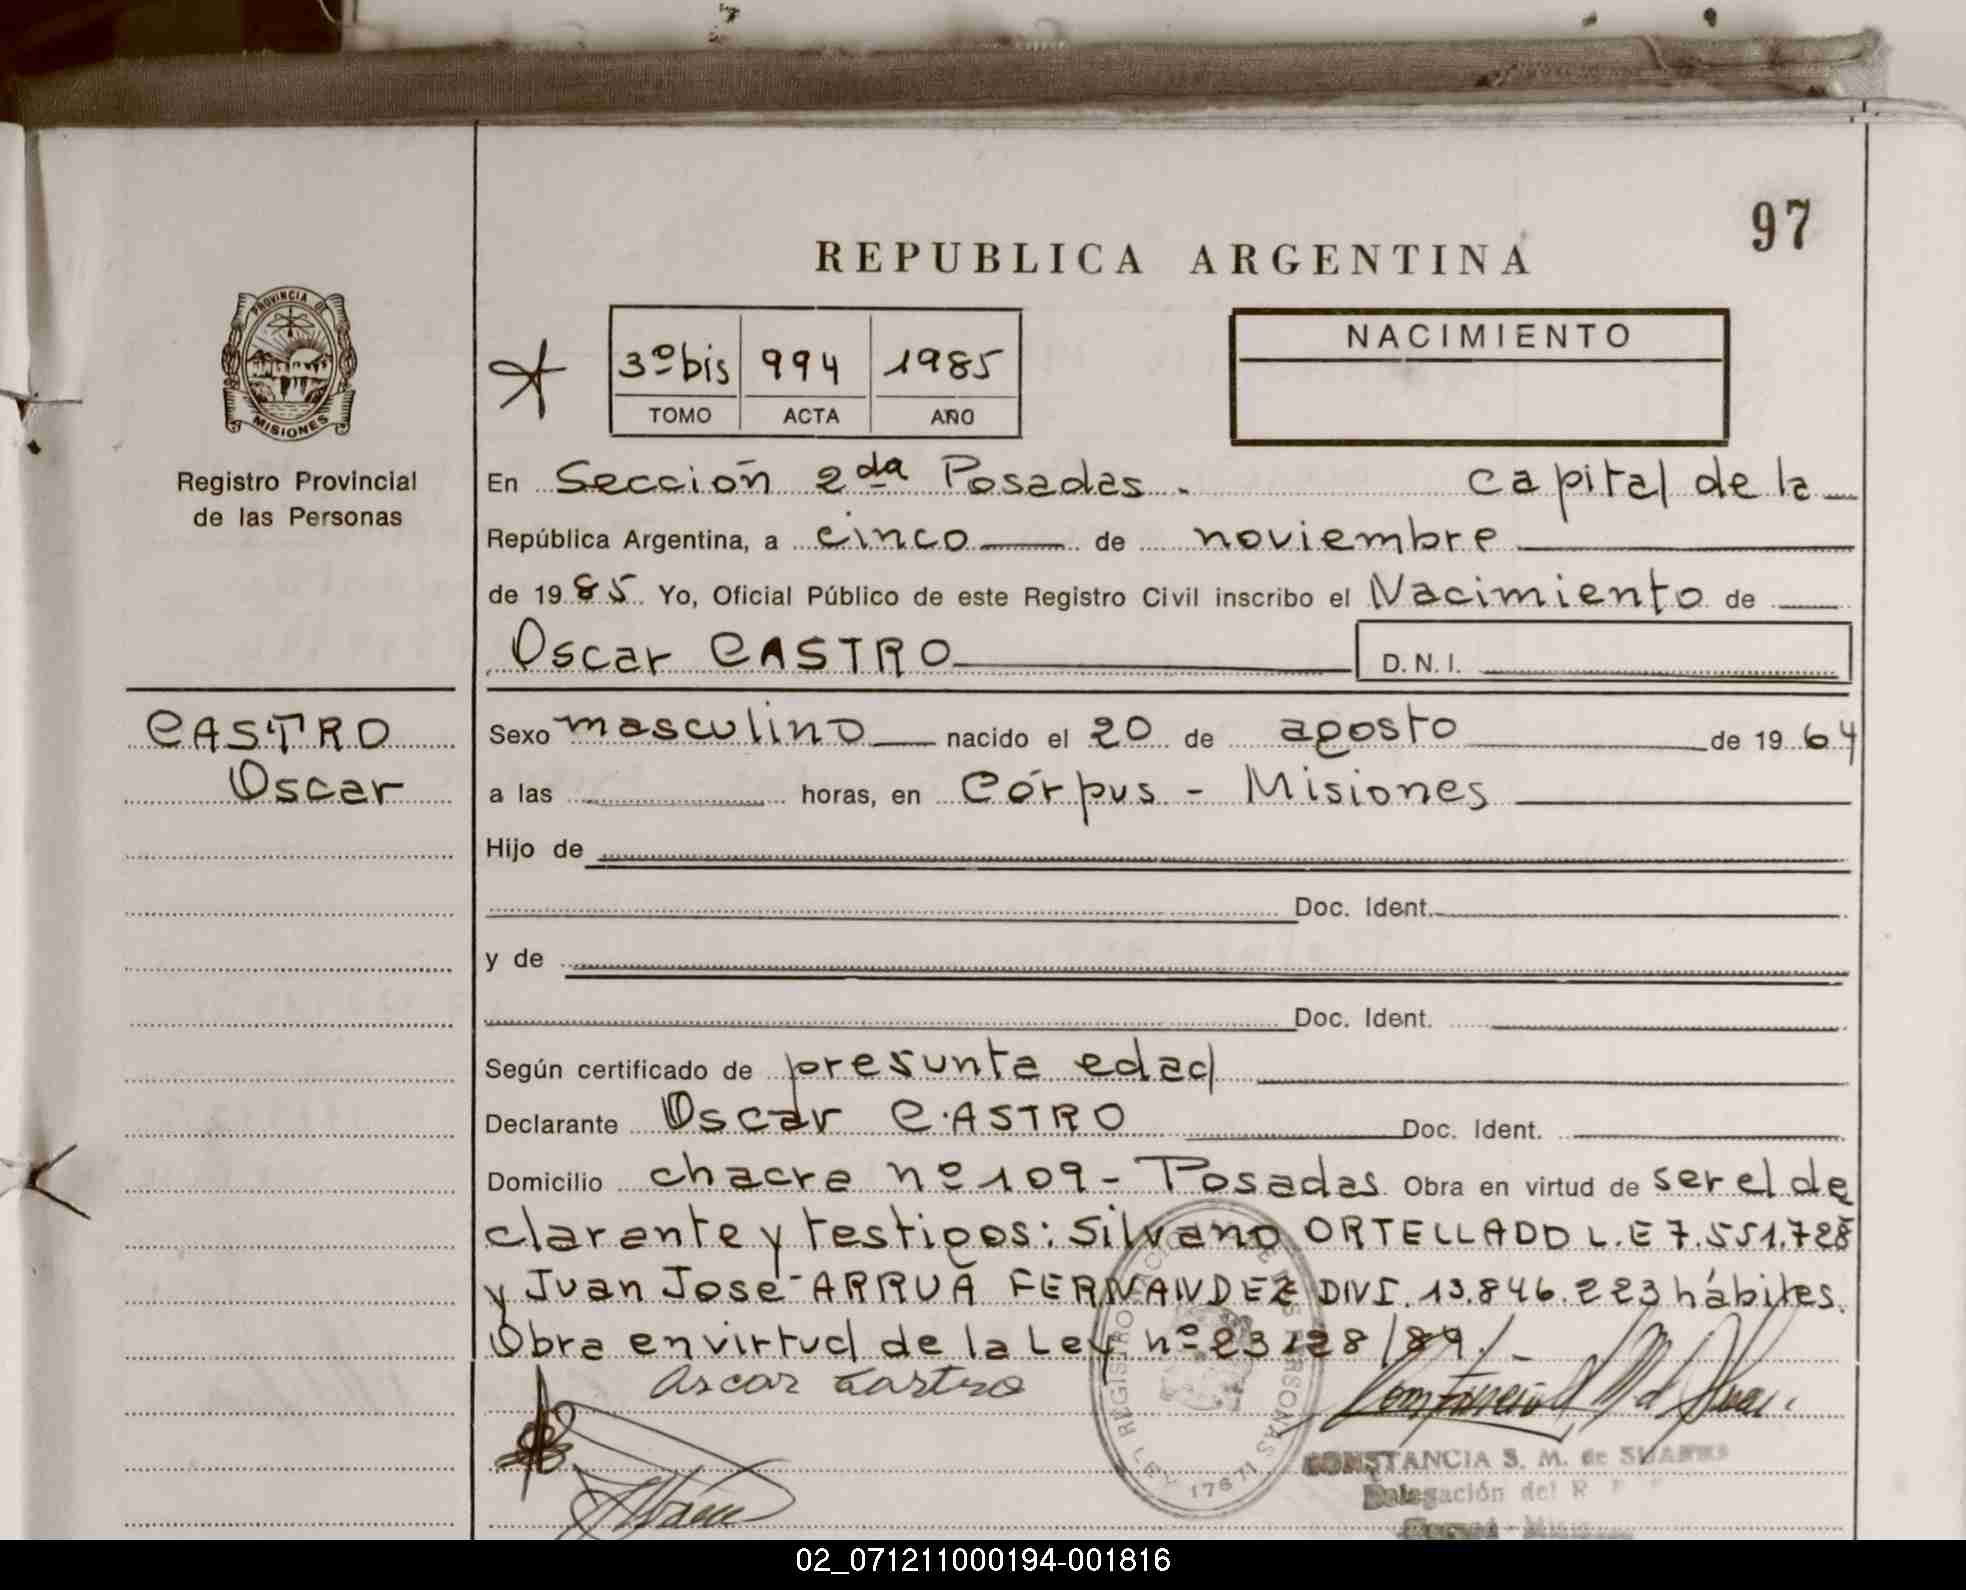 97
REPUBLICA ARGENTINA
PROVINCIA DE
MISIONES
3º bis 994 1985
TOMO ACTA AÑO
NACIMIENTO
Registro Provincial
de las Personas
En Sección 2da Posadas. capital de la
República Argentina, a cinco de noviembre
de 1985 Yo, Oficial Público de este Registro Civil inscribo el Nacimiento de
Oscar CASTRO D.N.I.
CASTRO
Oscar
Sexo masculino nacido el 20 de agosto de 1964
a las horas, en Córpus - Misiones
Hijo de
Doc. Ident.
y de
Doc. Ident.
Según certificado de presunta edad
Declarante Oscar CASTRO Doc. Ident.
Domicilio chacra nº 109 - Posadas Obra en virtud de ser el de
clarante y testigos: Silvano ORTELLADO L.E 7.551.728
y Juan José ARRUA FERNANDEZ DNI. 13.846.223 hábiles.
Obra en virtud de la Ley nº 23128/84. -
Oscar Castro
LEY 17671
CONSTANCIA S. M. de SUAREZ
Delegación del R
02_071211000194-001816